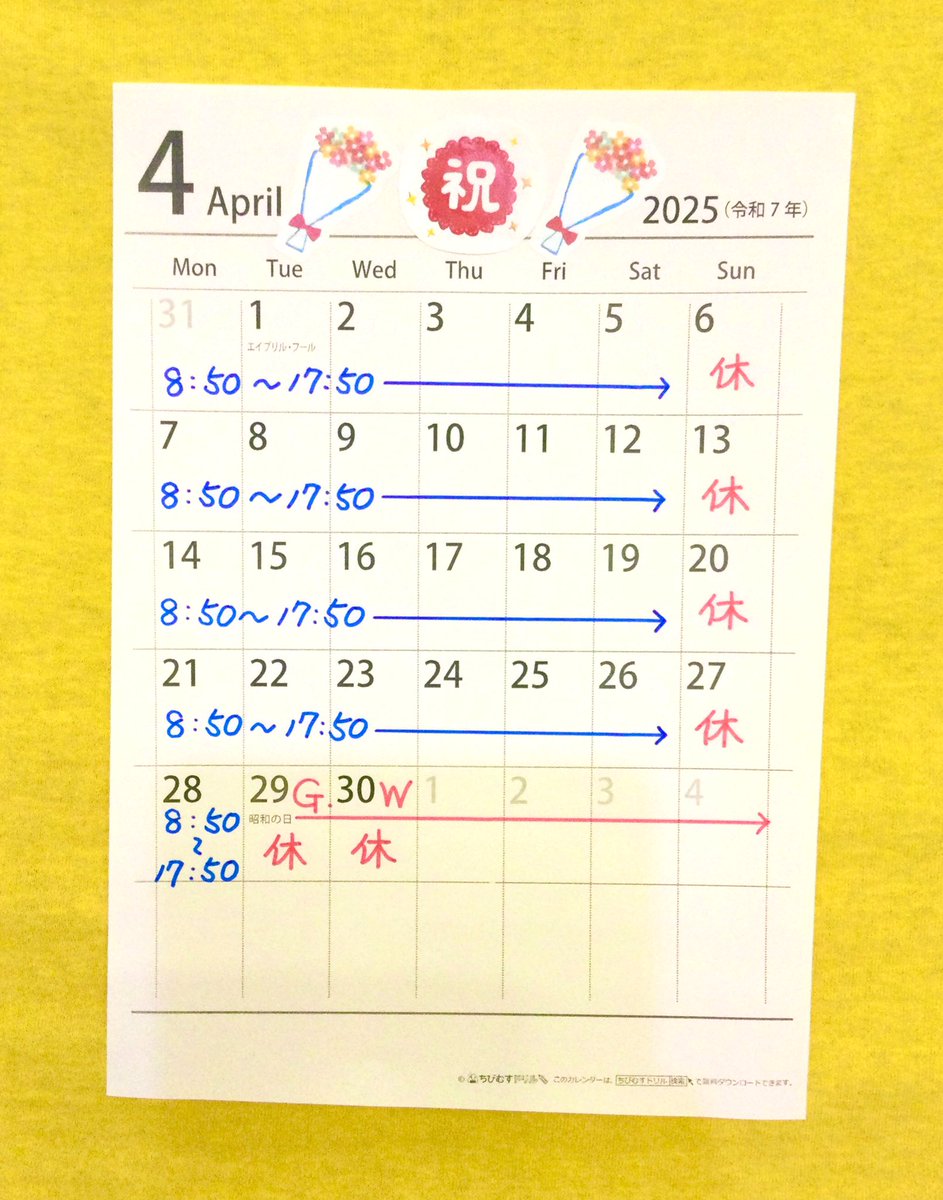 4 April 祝 2025(令和7年)
Mon Tue Wed Thu Fri Sat Sun
31 1 2 3 4 5 6
エイプリル・フール
8:50~17:50 休
7 8 9 10 11 12 13
8:50~17:50 休
14 15 16 17 18 19 20
8:50~17:50 休
21 22 23 24 25 26 27
8:50~17:50 休
28 29 G. 30 W 1 2 3 4
8:50 昭和の日
~ 休 休
17:50
© ちびむすドリル このカレンダーは、ちびむすドリル 検索 で無料ダウンロードできます。